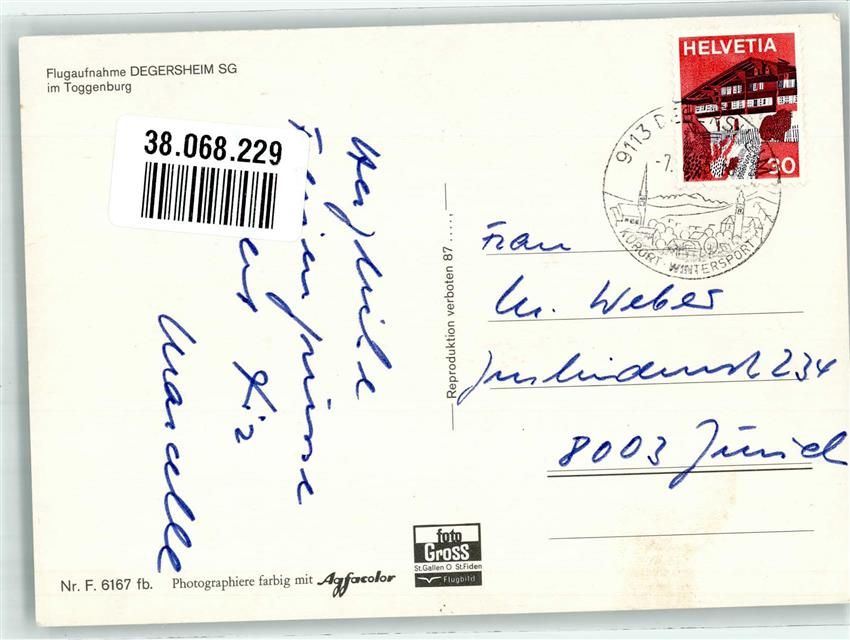 Flugaufnahme DEGERSHEIM SG
im Toggenburg
38.068.229
Herzliche
Feriengrüsse
Marcelle
Reproduktion verboten 87 .....,
HELVETIA
30
9113 DEGERSHEIM
-7.
KURORT WINTERSPORT
Frau
M. Weber
234
8003 Zürich
Nr. F. 6167 fb. Photographiere farbig mit Agfacolor
foto
Gross
St.Gallen O St.Fiden
Flugbild